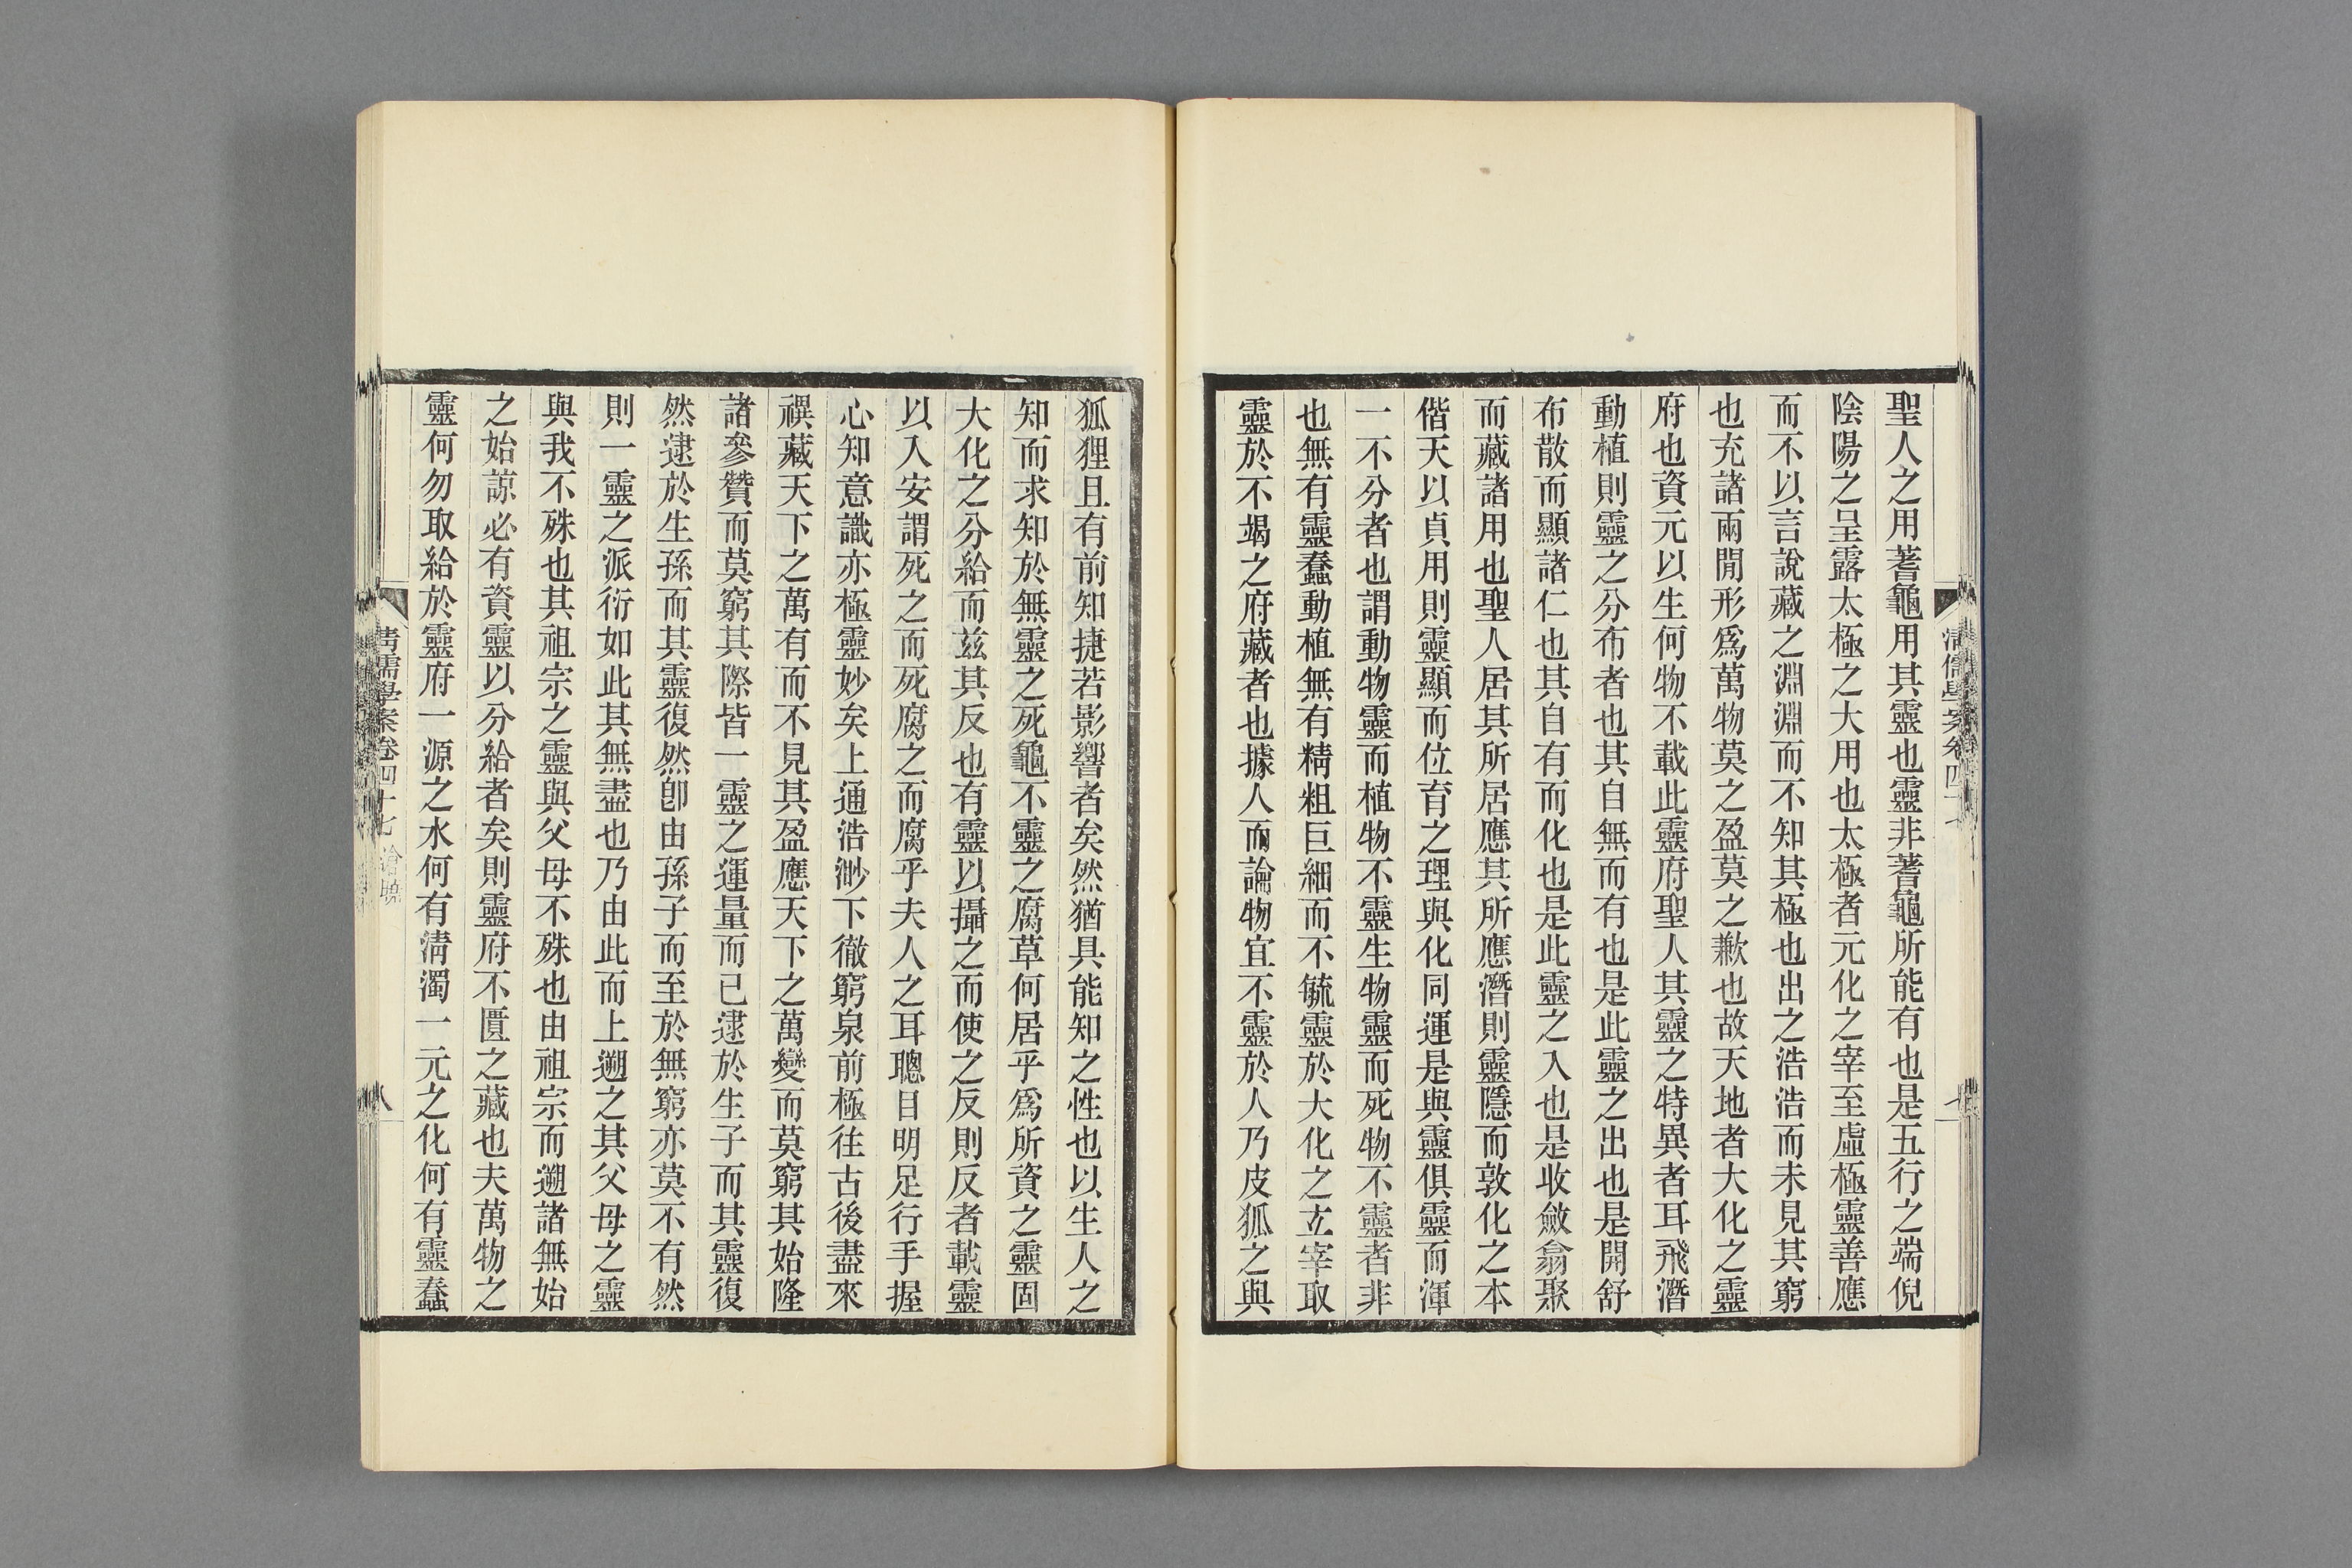 聖人之用蓍龜用其靈也靈非蓍龜所能有也是五行之端倪
陰陽之呈露太極之大用也太極者元化之宰至虛極靈善應
而不以言說藏之淵淵而不知其極也出之浩浩而未見其窮
也充諸兩閒形爲萬物莫之盈莫之歉也故天地者大化之靈
府也資元以生何物不載此靈府聖人其靈之特異者耳飛潛
動植則靈之分布者也其自無而有也是此靈之出也是開舒
布散而顯諸仁也其自有而化也是此靈之入也是收斂翕聚
而藏諸用也聖人居其所居應其所應潛則靈隱而敦化之本
偕天以貞用則靈顯而位育之理與化同運是與靈俱靈而渾
一不分者也謂動物靈而植物不靈生物靈而死物不靈者非
也無有靈蠢動植無有精粗巨細而不毓靈於大化之玄宰取
靈於不竭之府藏者也據人而論物宜不靈於人乃皮狐之與
狐狸且有前知捷若影響者矣然猶具能知之性也以生人之
知而求知於無靈之死龜不靈之腐草何居乎爲所資之靈固
大化之分給而茲其反也有靈以攝之而使之反則反者載靈
以入安謂死之而死腐之而腐乎夫人之耳聰目明足行手握
心知意識亦極靈妙矣上通浩渺下徹窮泉前極往古後盡來
禩藏天下之萬有而不見其盈應天下之萬變而莫窮其始隆
諸參贊而莫窮其際皆一靈之運量而已逮於生子而其靈復
然逮於生孫而其靈復然卽由孫子而至於無窮亦莫不有然
則一靈之派衍如此其無盡也乃由此而上遡之其父母之靈
與我不殊也其祖宗之靈與父母不殊也由祖宗而遡諸無始
之始諒必有資靈以分給者矣則靈府不匱之藏也夫萬物之
靈何勿取給於靈府一源之水何有淸濁一元之化何有靈蠢
清儒學案卷四十七
八